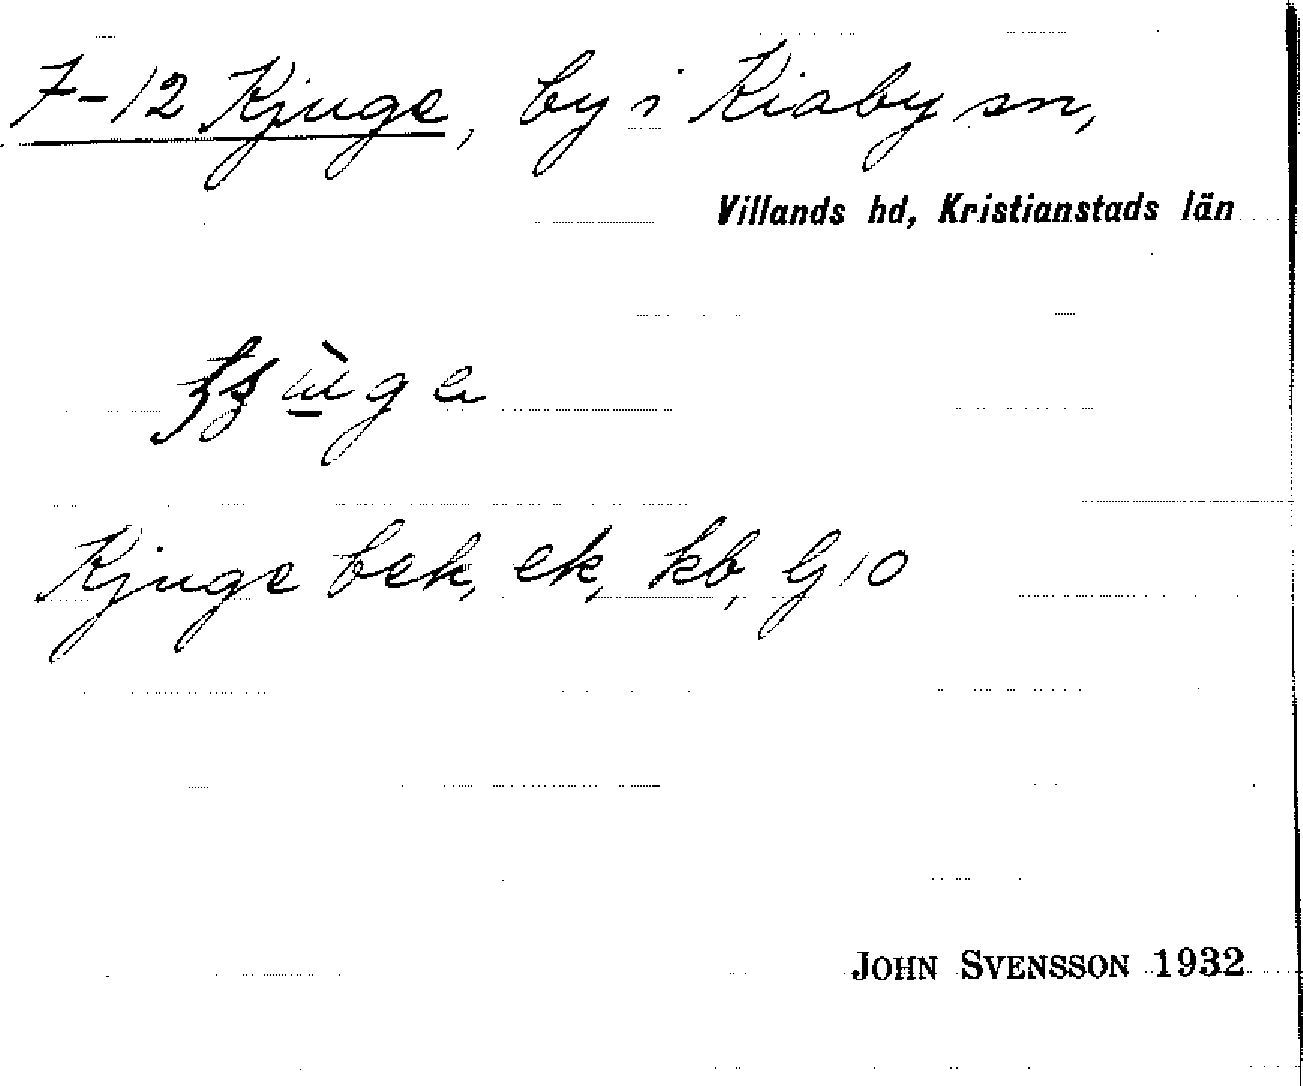 7-12 Kjuge, by i Kiaby sn,
Villands hd, Kristianstads län
Kjuge bek, ek, kb, G10
JOHN SVENSSON 1932